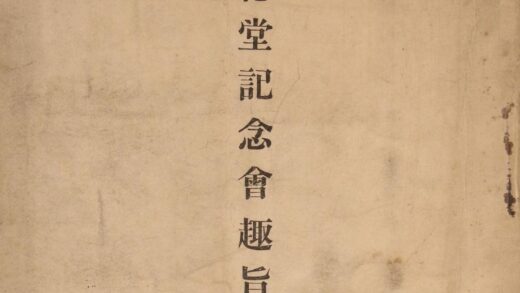 堂記念會趣旨